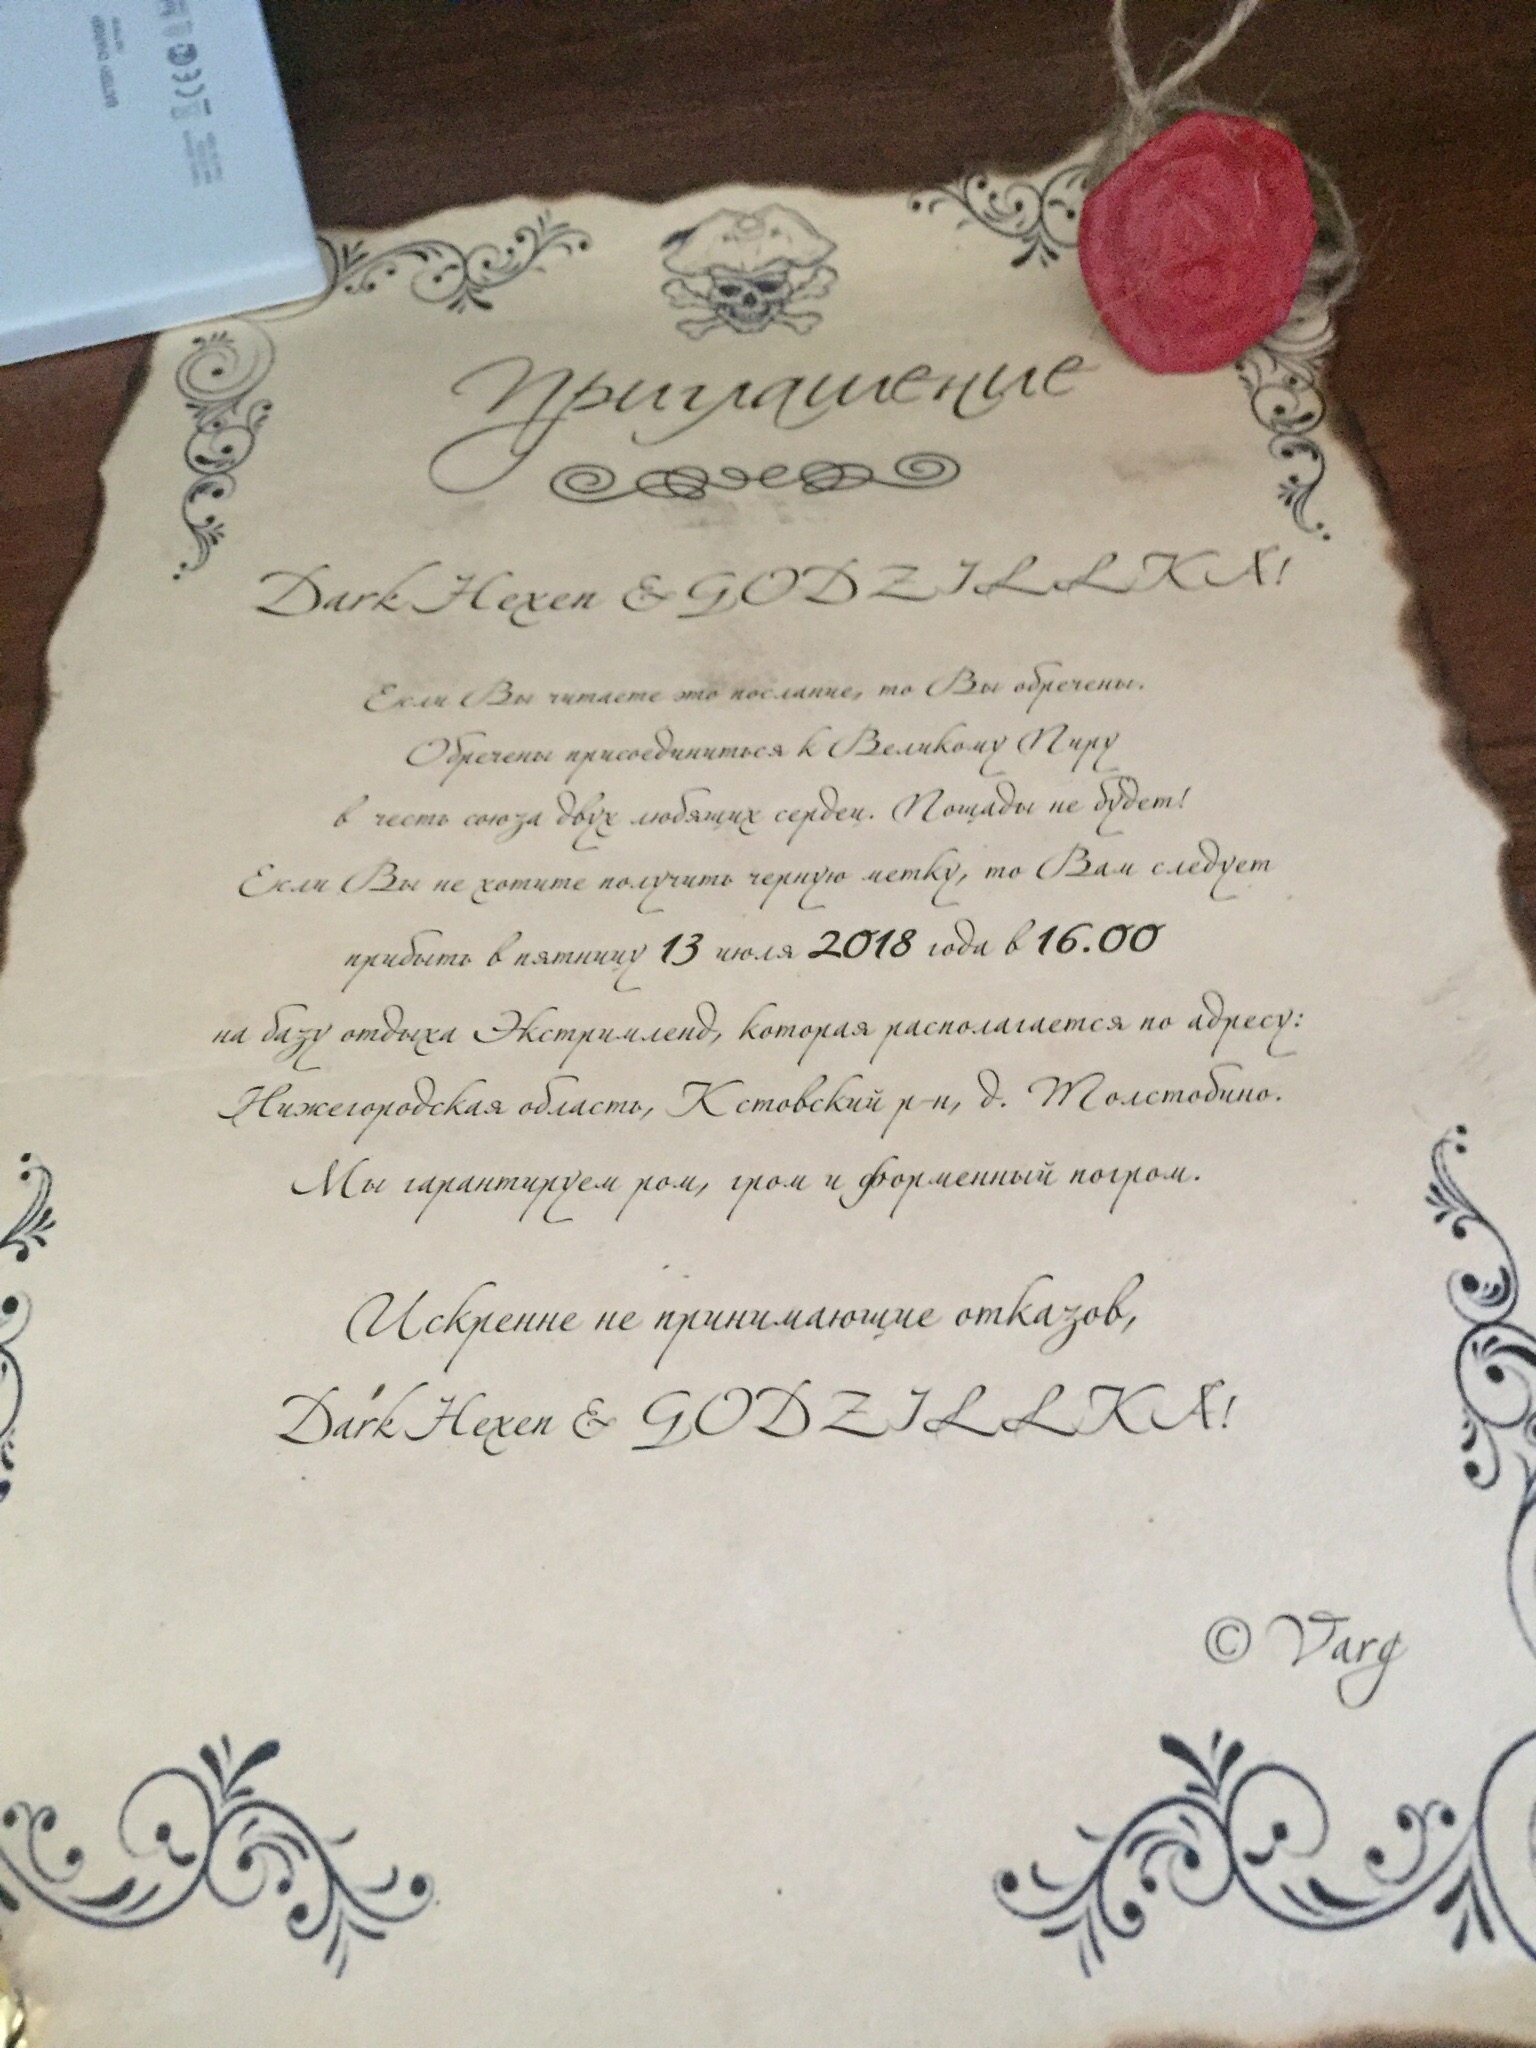 Приглашение
Dark Hexen & GODZILLKA!
Если Вы читаете это послание, то Вы обречены.
Обречены присоединиться к Великому Пиру
в честь союза двух любящих сердец. Пощады не будет!
Если Вы не хотите получить черную метку, то Вам следует
прибыть в пятницу 13 июля 2018 года в 16.00
на базу отдыха Экстримленд, которая располагается по адресу:
Нижегородская область, Кстовский р-н, д. Толстобино.
Мы гарантируем ром, гром и форменный погром.
Искренне не принимающие отказов,
Dark Hexen & GODZILLKA!
© Varg